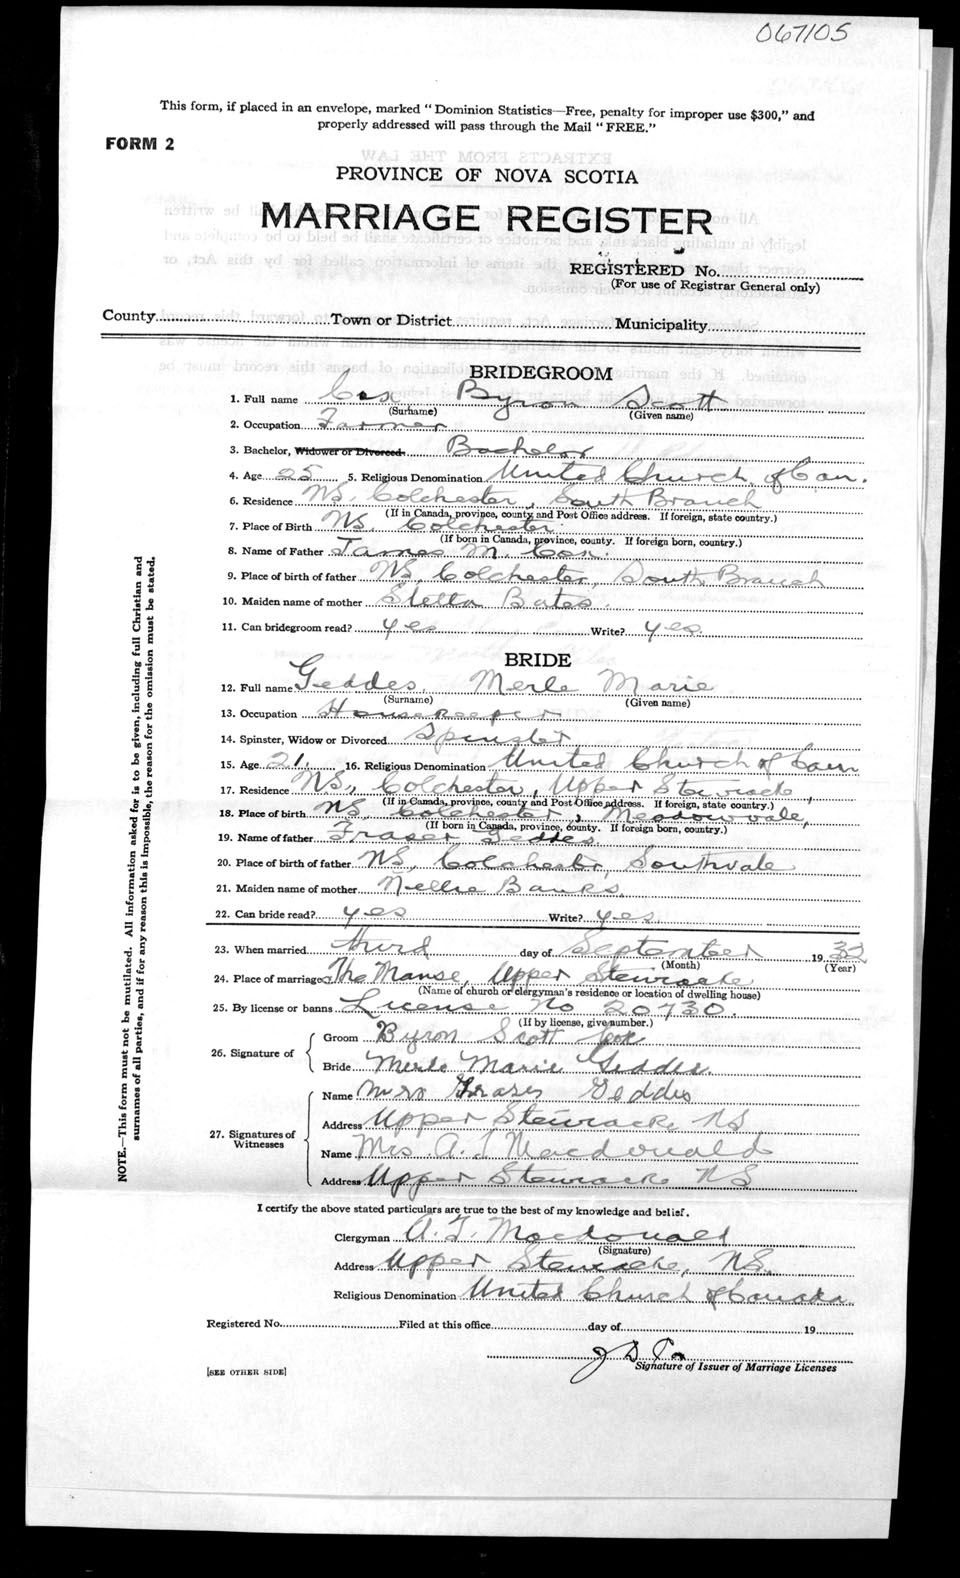 067105
This form, if placed in an envelope, marked "Dominion Statistics—Free, penalty for improper use $300," and
properly addressed will pass through the Mail "FREE."
FORM 2
PROVINCE OF NOVA SCOTIA
MARRIAGE REGISTER
REGISTERED No.
(For use of Registrar General only)
County Town or District Municipality
BRIDEGROOM
1. Full name Cox Byron Scott
(Surname) (Given name)
2. Occupation Farmer
3. Bachelor, Widower or Divorced. Bachelor
4. Age 25 5. Religious Denomination United Church of Can.
6. Residence NS. Colchester, South Branch
(If in Canada, province, county and Post Office address. If foreign, state country.)
7. Place of Birth NS. Colchester.
(If born in Canada, province, county. If foreign born, country.)
8. Name of Father James M. Cox.
9. Place of birth of father NS, Colchester, South Branch
10. Maiden name of mother Stella Bates.
11. Can bridegroom read? yes Write? yes.
BRIDE
12. Full name Geddes, Merle Marie
(Surname) (Given name)
13. Occupation Housekeeper
14. Spinster, Widow or Divorced Spinster
15. Age 21. 16. Religious Denomination United Church of Can
17. Residence NS., Colchester, Upper Stewiacke,
(If in Canada, province, county and Post Office address. If foreign, state country.)
18. Place of birth NS. Colchester, Meadowvale,
(If born in Canada, province, county. If foreign born, country.)
19. Name of father Fraser Geddes
20. Place of birth of father NS, Colchester, Southvale
21. Maiden name of mother Nellie Banks.
22. Can bride read? yes Write? yes
23. When married third day of September 1932
(Month) (Year)
24. Place of marriage The Manse, Upper Stewiacke
(Name of church or clergyman's residence or location of dwelling house)
25. By license or banns License No 20730.
(If by license, give number.)
26. Signature of Groom Byron Scott Cox
Bride Merle Marie Geddes.
27. Signatures of Witnesses
Name Mrs Fraser Geddes
Address Upper Stewiacke NS
Name Mrs. A. F. Macdonald
Address Upper Stewiacke NS
I certify the above stated particulars are true to the best of my knowledge and belief.
Clergyman A. F. Macdonald
(Signature)
Address Upper Stewiacke, NS.
Religious Denomination United Church of Canada.
Registered No. Filed at this office day of 19
Signature of Issuer of Marriage Licenses
[SEE OTHER SIDE]
NOTE.—This form must not be mutilated. All information asked for is to be given, including full Christian and
surnames of all parties, and if for any reason this is impossible, the reason for the omission must be stated.